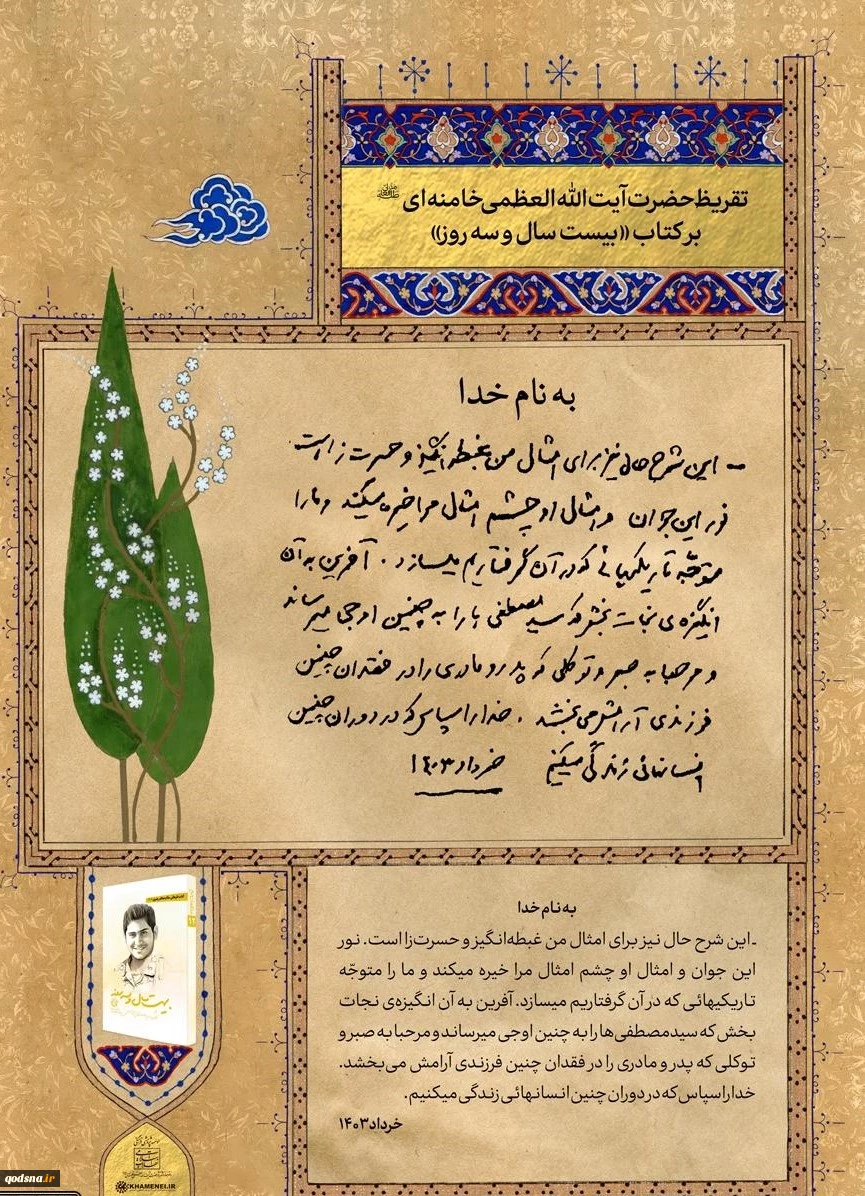 تقریظ حضرت آیت الله العظمی خامنه‌ای مدظله‌العالی
بر کتاب «بیست سال و سه روز»
به نام خدا
- این شرح حال نیز برای امثال من غبطه‌انگیز و حسرت‌زا است
نور این جوان و امثال او چشم امثال مرا خیره میکند و ما را
متوجّه تاریکیهائی که در آن گرفتاریم میسازد. آفرین به آن
انگیزه‌ی نجات بخش که سید مصطفی ها را به چنین اوجی میرساند
و مرحبا به صبر و توکلی که پدر و مادری را در فقدان چنین
فرزندی آرامش می‌بخشد. خدا را سپاس که در دوران چنین
انسانهائی زندگی میکنیم خرداد ۱۴۰۳
به نام خدا
ـ این شرح حال نیز برای امثال من غبطه‌انگیز و حسرت‌زا است. نور
این جوان و امثال او چشم امثال مرا خیره میکند و ما را متوجّه
تاریکیهائی که در آن گرفتاریم میسازد. آفرین به آن انگیزه‌ی نجات
بخش که سید مصطفی‌ها را به چنین اوجی میرساند و مرحبا به صبر و
توکلی که پدر و مادری را در فقدان چنین فرزندی آرامش می‌بخشد.
خدا را سپاس که در دوران چنین انسانهائی زندگی میکنیم.
خرداد ۱۴۰۳
بیست سال و سه روز
KHAMENEI.IR
qodsna.ir